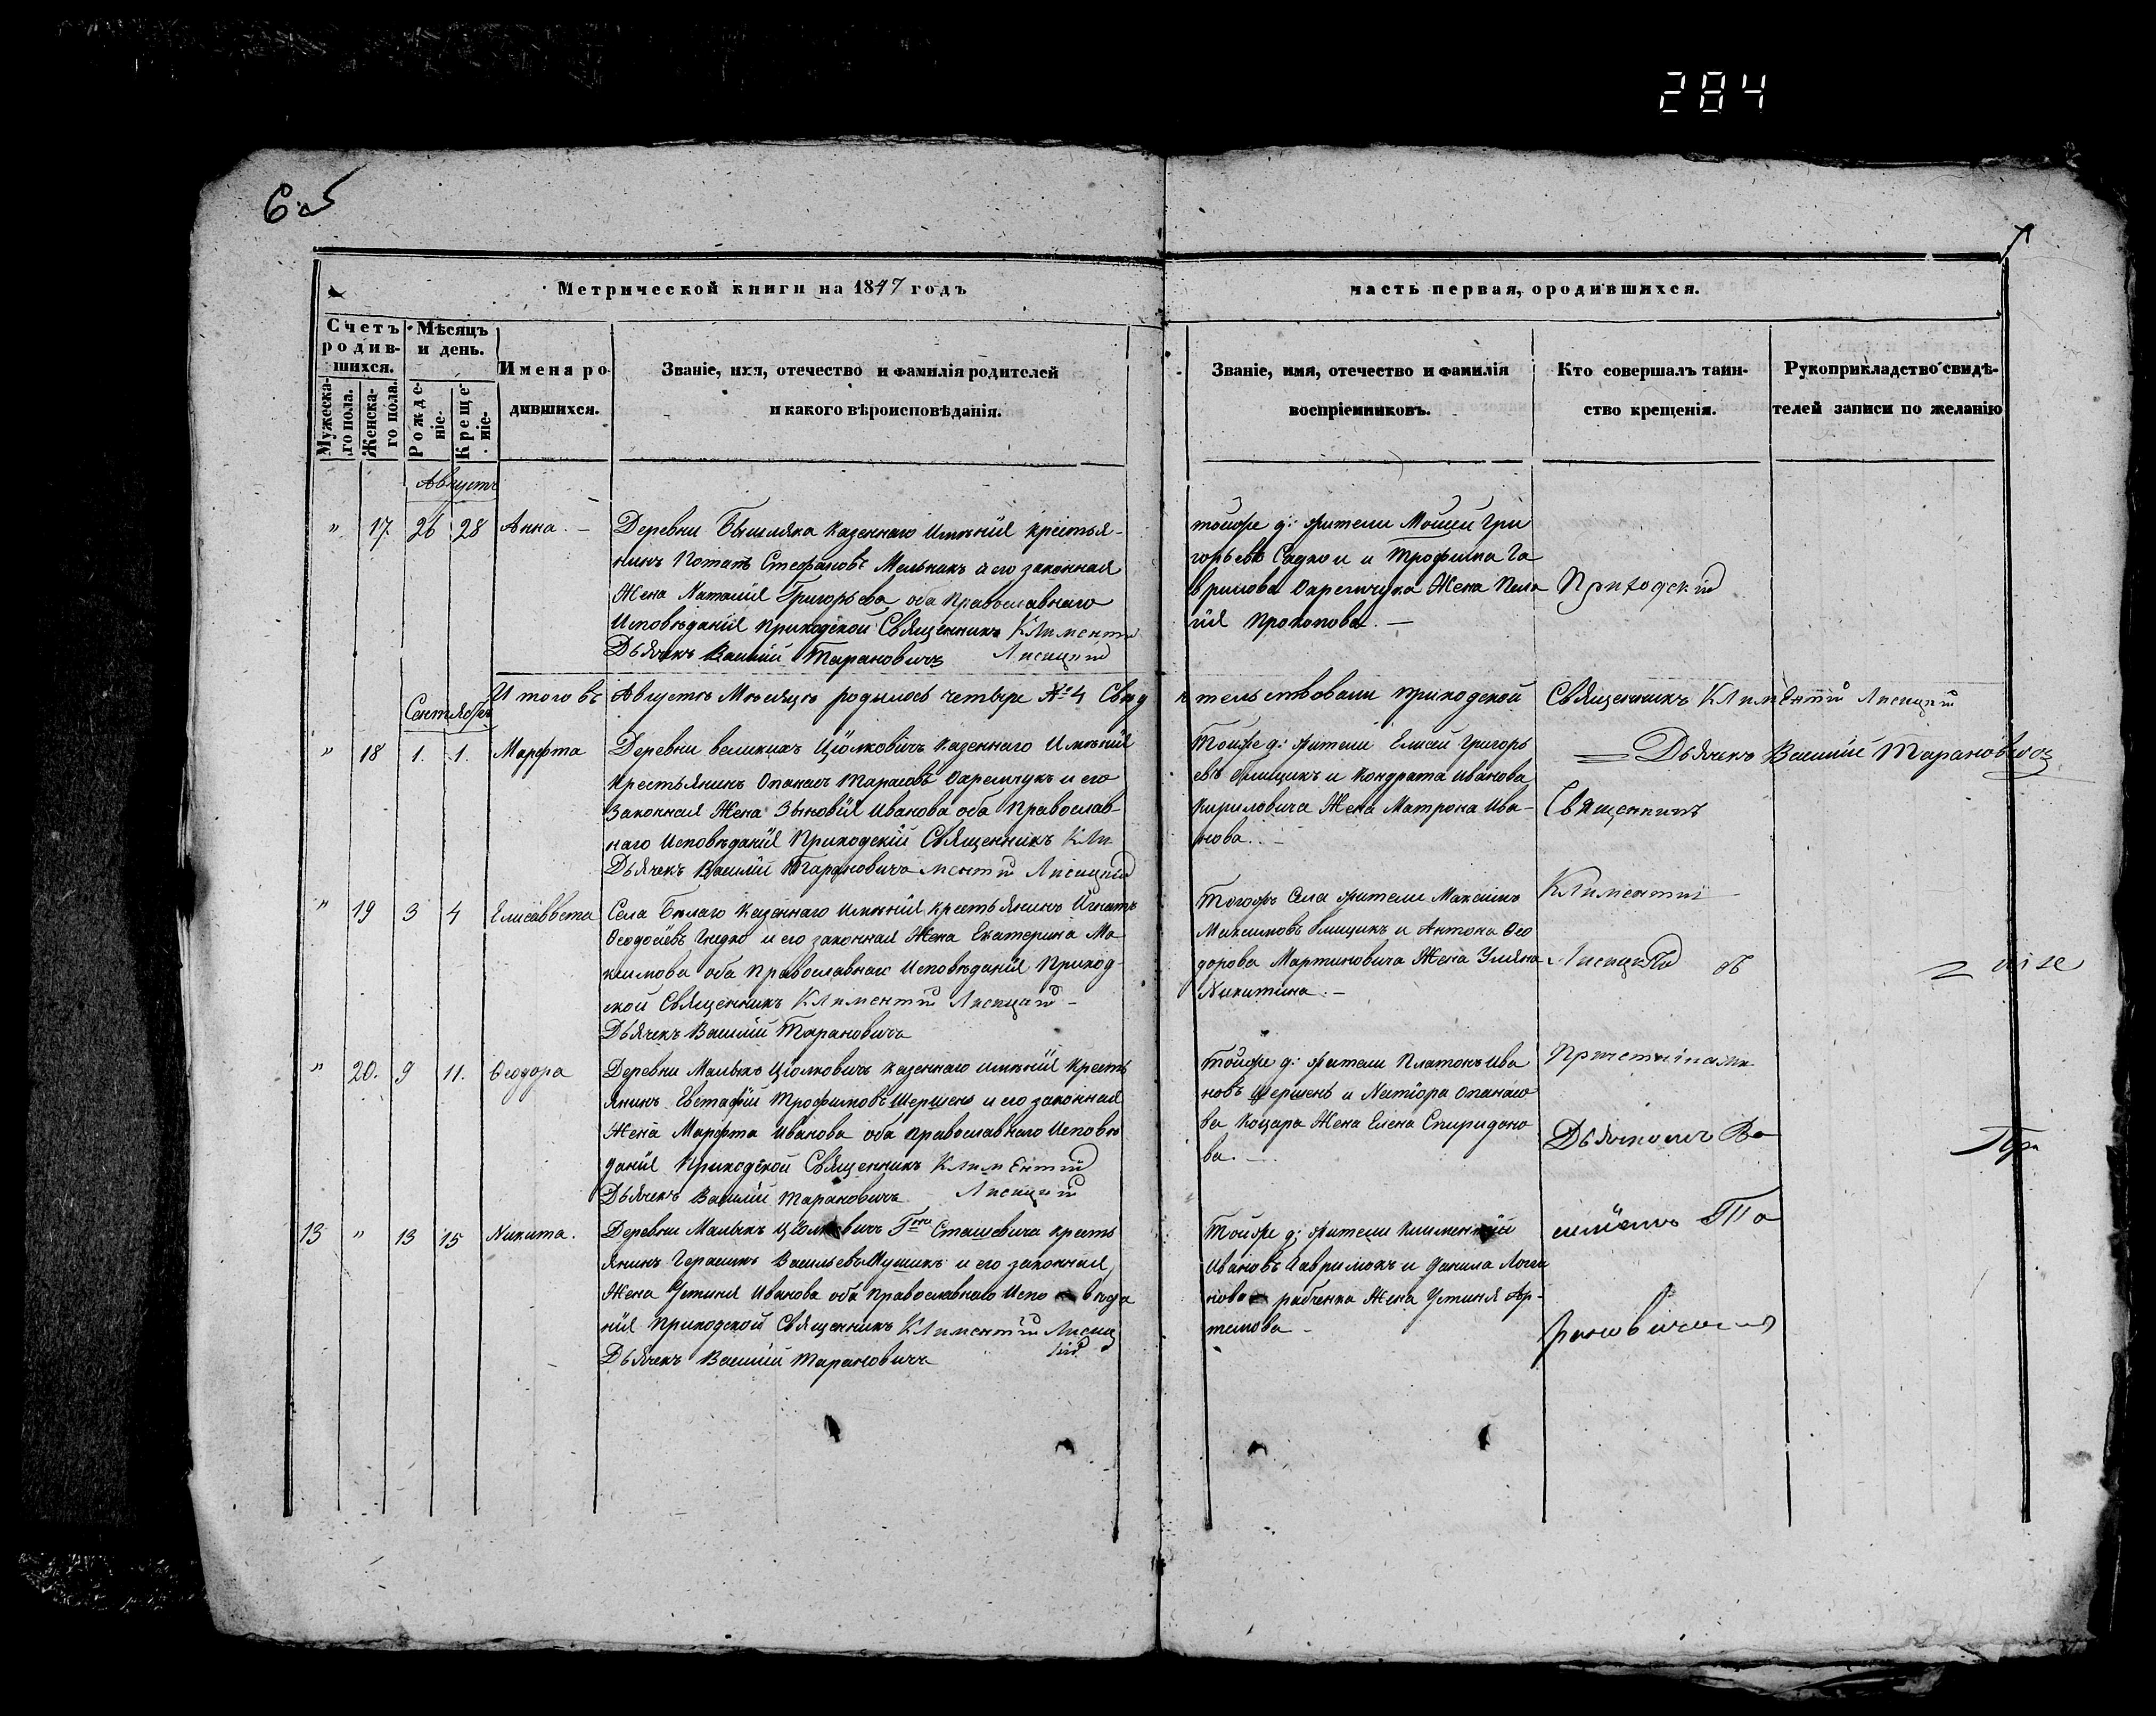 284
Метрической книги на 1847 годъ
часть первая, ородившихся.
Счетъ родив-шихся.
Мужеска-го пола.
Женска-го пола.
Мѣсяцъ и день.
Рожде-ніе.
Креще-ніе.
Имена ро-дившихся.
Званіе, имя, отечество и фамилія родителей
и какого вѣроисповѣданія.
Званіе, имя, отечество и фамилія
воспріемниковъ.
Кто совершалъ таин-
ство крещенія.
Рукоприкладство свидѣ-
телей записи по желанію
Августъ
" 17. 26 28 Анна. –
Деревни казеннаго Имѣнія крестья-
нинъ Потапъ Стефановъ Мельникъ и его законная
Жена Наталія Григорьева оба Православнаго
Исповѣданія приходской Священникъ Климентій
Дьячекъ Василій Тарановичъ Лисицкій
тойже д: жители Мойсей Гри
горьевъ и Трофима Га
врилова Охремчука Жена Пела
гія Прокопова. –
Приходскій
Итого въ Августѣ Мѣсяцѣ родилось четыре № 4 Свид
ѣтельствовали приходской Священникъ Климентій Лисицкій
Дьячекъ Василій Тарановичъ
Сентябрь
" 18 1. 1. Марфта
Деревни великихъ Ціолковичъ казеннаго Имѣнія
крестьянинъ Опанасъ Тарасовъ Охремчукъ и его
Законная Жена Зѣновія Иванова оба Православ-
наго Исповѣданія Приходскій Священникъ Кли
Дьячекъ Василій Тарановичъ ментій Лисицкій
Тойже д: жители Елисей Григорь
евъ и Кондрата Иванова
Кириловича Жена Матрона Ива-
нова. –
Священникъ
" 19 3 4 Елисаввета
Села Бѣлаго Казеннаго Имѣнія крестьянинъ Игнатъ
Ѳеодосіевъ и его законная Жена Екатерина Ма
ксимова оба Православнаго Исповѣданія Приход-
ской Священникъ Климентій Лисицкій –
Дьячекъ Василій Тарановичъ
Тогожъ Села жители Максимъ
Максимовъ и Антона Ѳео
дорова Мартиновича Жена Уліяна
Никитина. –
Климентій
Лисицкій съ
" 20. 9 11. Ѳеодора
Деревни Малыхъ Ціолковичъ казеннаго имѣнія Кресть
янинъ Евстафій Трофимовъ Шершень и его законная
Жена Марфта Иванова оба православнаго Исповѣ
данія Приходской Священникъ Климентій
Дьячекъ Василій Тарановичъ Лисицкій
Тойже д: жители Платонъ Ива
новъ Шершень и Нестора Опанасо
ва Коцара Жена Елена Спиридоно
ва. –
Дьячкомъ Ва
13 " 13 15 Никита.
Деревни Малыхъ Ціолковичъ Гна Сташевича кресть
янинъ Герасимъ Васильевъ и его законная
Жена Устинія Иванова оба Православнаго Испо вѣда
нія Приходской Священникъ Климентій Лисиц
Дьячекъ Василій Тарановичъ кій
Тойже д: жители Климентій
Ивановъ Гаврилюкъ и Данила Логги
нова Жена Устинія Ар-
темова –
силіемъ Та
рановичемъ